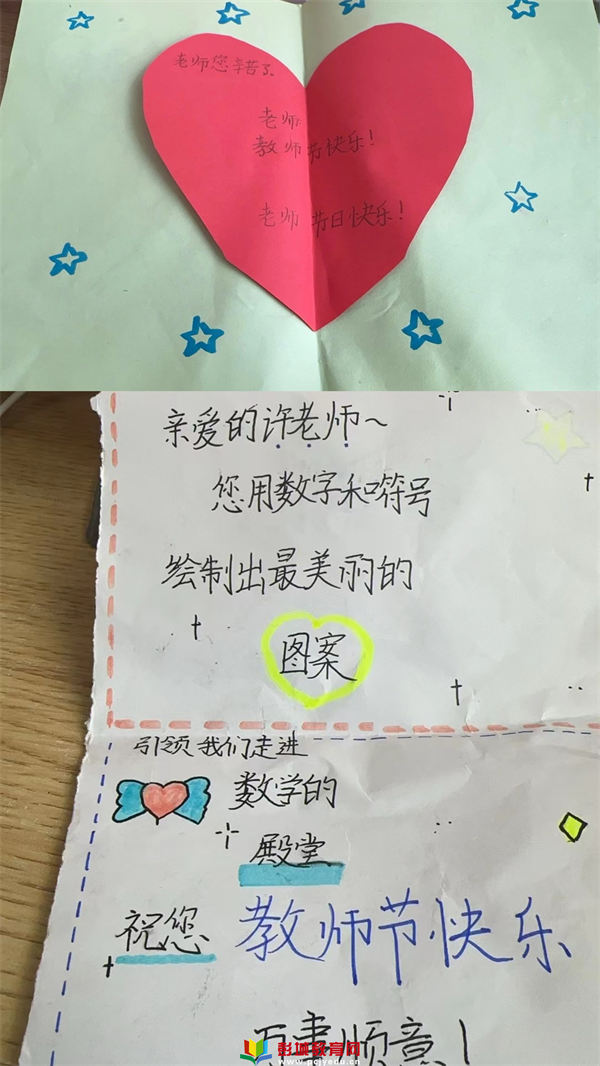 老师您辛苦了
老师:
教师节快乐!
老师节日快乐!
亲爱的许老师~
您用数字和符号
绘制出最美丽的
图案
引领我们走进
数学的
殿堂
祝您 教师节快乐
万事顺意!
彭城教育网
www.pcjyedu.cn